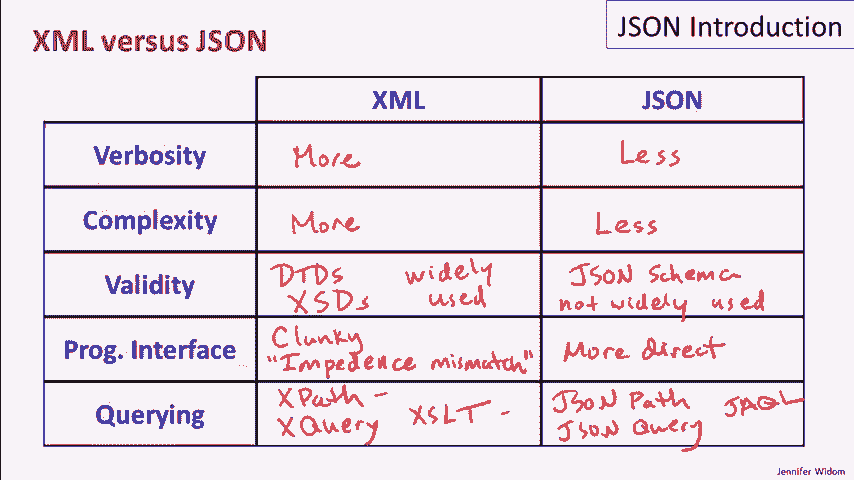 JSON Introduction
XML versus JSON
XML JSON
Verbosity More Less
Complexity More Less
Validity DTDs XSDs widely used JSON Schema not widely used
Prog. Interface Clunky "Impedence mismatch" More direct
Querying XPath - XQuery XSLT - JSON Path JSON Query JAQL
Jennifer Widom